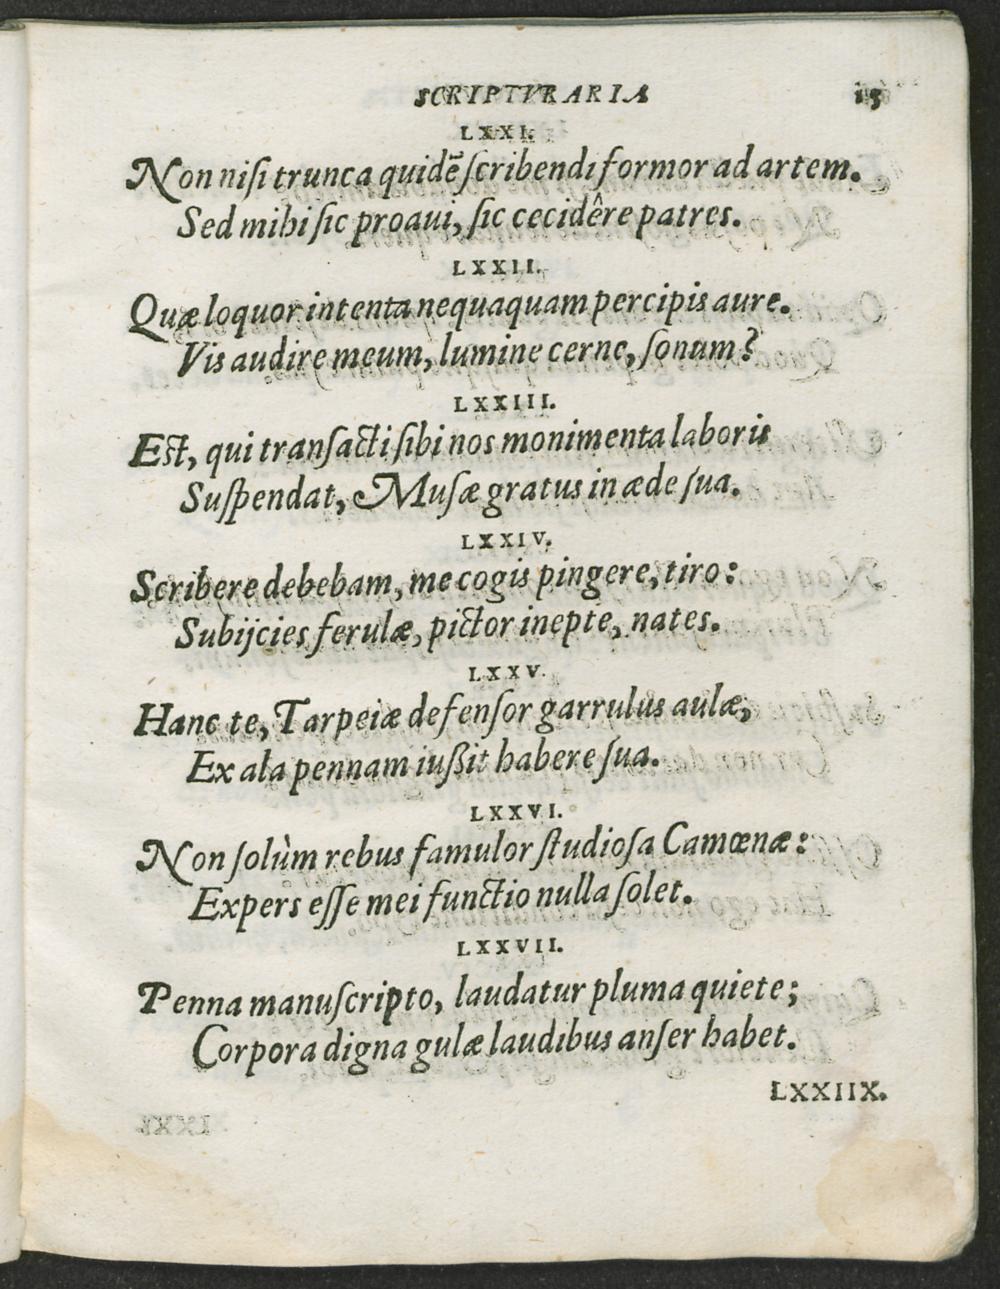 SCRIPTVRARIA 15
LXXI.
Non niſi trunca quidē ſcribendi formor ad artem.
Sed mihi ſic proaui, ſic cecidêre patres.
LXXII.
Quæ loquor intenta nequaquam percipis aure.
Vis audire meum, lumine cerne, ſonum?
LXXIII.
Eſt, qui tranſacti ſibi nos monimenta laboris
Suſpendat, Muſæ gratus in æde ſua.
LXXIV.
Scribere debebam, me cogis pingere, tiro:
Subijcies ferulæ, pictor inepte, nates.
LXXV.
Hanc te, Tarpeiæ defenſor garrulus aulæ,
Ex ala pennam iußit habere ſua.
LXXVI.
Non ſolùm rebus famulor ſtudioſa Camœnæ:
Expers eſſe mei functio nulla ſolet.
LXXVII.
Penna manuſcripto, laudatur pluma quiete;
Corpora digna gulæ laudibus anſer habet.
LXXIIX.